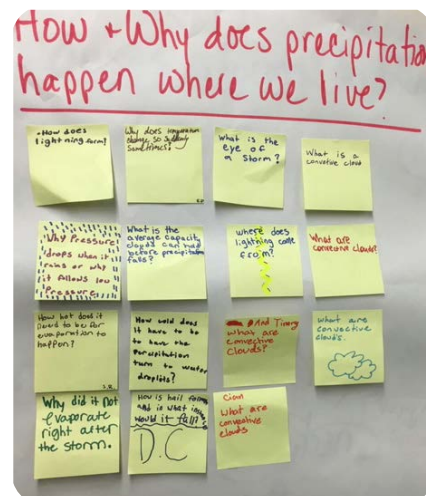 How + Why does precipitation
happen where we live?
• How does
lightning form?
Why does temperature
change so suddenly
sometimes?
What is the
eye of
a storm?
What is a
convective cloud
Why Pressure
drops when it
rains or why
it follows low
Pressure
What is the
average capacity
clouds can hold
before precipitation
falls?
where does
lightning come
from?
What are
convective clouds?
How hot does it
need to be for
evaporation to
happen?
S.R
How cold does
it have to be
to have the
percipitation
turn to water
droplits?
And Timmy
what are
convective
clouds?
What are
convective
clouds.
Why did it not
evaporate
right after
the storm.
How is hail
and in what
would it fall?
D.C
Cian
what are
convective
clouds